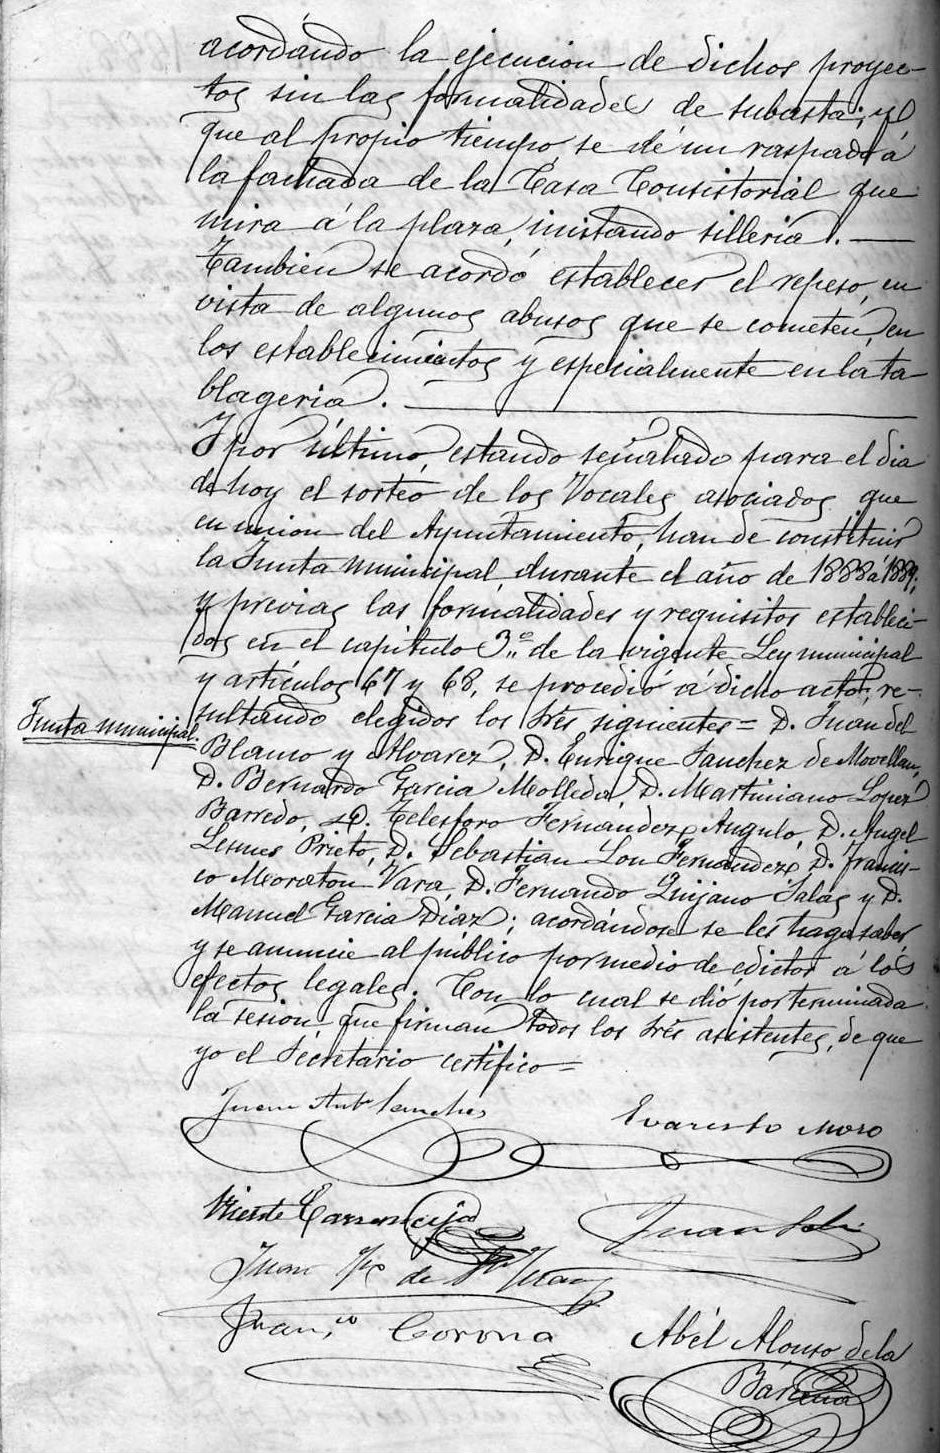 acordando la ejecucion de dichos proyec-
tos sin las formalidades de subasta; y
que al propio tiempo se dé un raspado á
la fachada de la Casa Consistorial que
mira á la plaza, imitando sillería.
Tambien se acordó establecer el repeso, en
vista de algunos abusos que se cometen, en
los establecimientos y especialmente en la ta
blagería.
Y por último, estando señalado para el dia
de hoy el sorteo de los Vocales asociados que
en union del Ayuntamiento, han de constituir
la Junta municipal durante el año de 1888 á 1889;
y previas las formalidades y requisitos estableci-
dos en el capitulo 3.º de la vigente Ley municipal
y artículos 67 y 68, se procedió á dicho acto, re-
Junta municipal.
sultando elegidos los Sres siguientes = D. Juan del
Blanco y Alvarez, D. Enrique Sanchez de Movellan,
D. Bernardo Garcia Molleda, D. Martiniano Lopez
Barredo, D. Telesforo Fernandez Angulo, D. Angel
Lesmes Prieto, D. Sebastian Lon Fernandez, D. Francis-
co Moraton Vara, D. Fernando Quijano Salas y D.
Manuel Garcia Diaz; acordándose se les haga saber
y se anuncie al público por medio de edictos á los
efectos legales. Con lo cual se dió por terminada
la sesion, que firman todos los Sres asistentes, de que
yo el Secretario certifico =
Juan Antº Sanchez
Evaristo Moro
Vicente Carrancejo
Juan
Juan de
Franco Corona
Abél Alonso de la
Bárcena